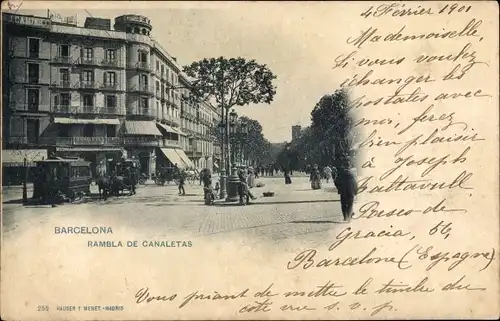 4 Février 1901
Mademoiselle,
Si vous voulez
échanger les
postales avec
moi, ferez
bien plaisir
à Joseph
Fattavull.
Paseo de
Gracia, 54,
Barcelone (Espagne)
Vous priant de mettre le timbre du
coté vue s. v. p.
BARCELONA
RAMBLA DE CANALETAS
252 HAUSER Y MENET.-MADRID